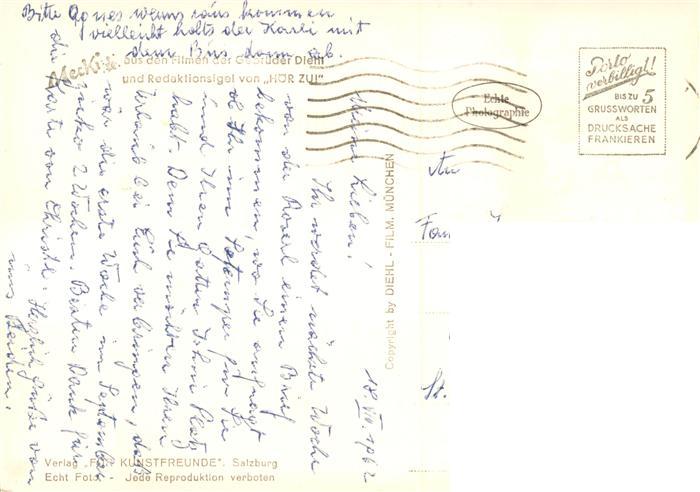 Bitte Agnes wenns raus kommen
vielleicht holts der Karli mit
dem Bus dann ab.
Mecki
aus den Filmen der Gebrüder Diehl
und Redaktionsigel von „HÖR ZU!"
Echte
Photographie
Porto
verbilligt!
BIS ZU 5
GRUSSWORTEN
ALS
DRUCKSACHE
FRANKIEREN
An
Fam
St.
Copyright by DIEHL - FILM, MÜNCHEN
18. VII. 1962
Meine Lieben!
Ihr werdet nächste Woche
von der Roserl einen Brief
bekommen, wo Sie anfragt
ob Ihr im September für Sie
und Ihren Gatten Platz
habt. Denn Sie möchten Ihren
Urlaub bei Euch verbringen, das
wär die erste Woche im September
zirka 2 Wochen. Besten Dank für
die Karte von Christl. Herzlich Grüße von
uns Beiden.
Verlag „FÜR KUNSTFREUNDE". Salzburg
Echt Foto - Jede Reproduktion verboten